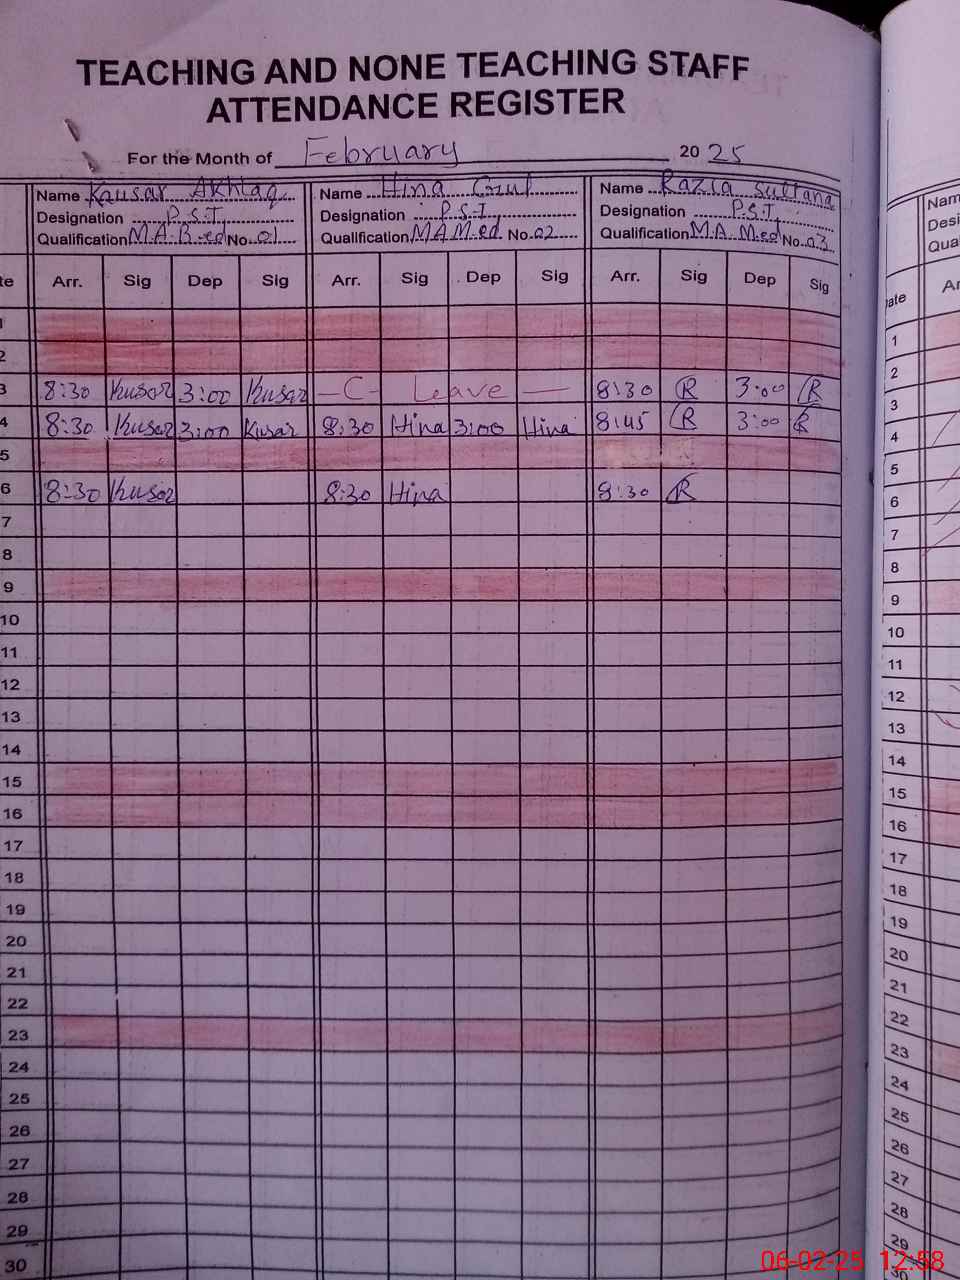 TEACHING AND NONE TEACHING STAFF
ATTENDANCE REGISTER
For the Month of February 2025
Name Kausar Akhlaq Name Hina Gul Name Razia Sultana
Designation P.S.T, Designation P.S.T, Designation P.S.T,
Qualification M.A.B.ed No. 01 Qualification M.A M.ed No. 02 Qualification M.A. M.ed No. 03
te Arr. Sig Dep Sig Arr. Sig Dep Sig Arr. Sig Dep Sig
1
2
3 8:30 Kusar 3:00 Kusar - C - Leave - 8:30 R 3:00 R
4 8:30 Kusar 3:00 Kusar 8:30 Hina 3:00 Hina 8:45 R 3:00 R
5
6 8:30 Kusar 8:30 Hina 8:30 R
7
8
9
10
11
12
13
14
15
16
17
18
19
20
21
22
23
24
25
26
27
28
29
30
Nam
Desi
Qua
ate Ar
1
2
3
4
5
6
7
8
9
10
11
12
13
14
15
16
17
18
19
20
21
22
23
24
25
26
27
28
29
30
06-02-25 12:58